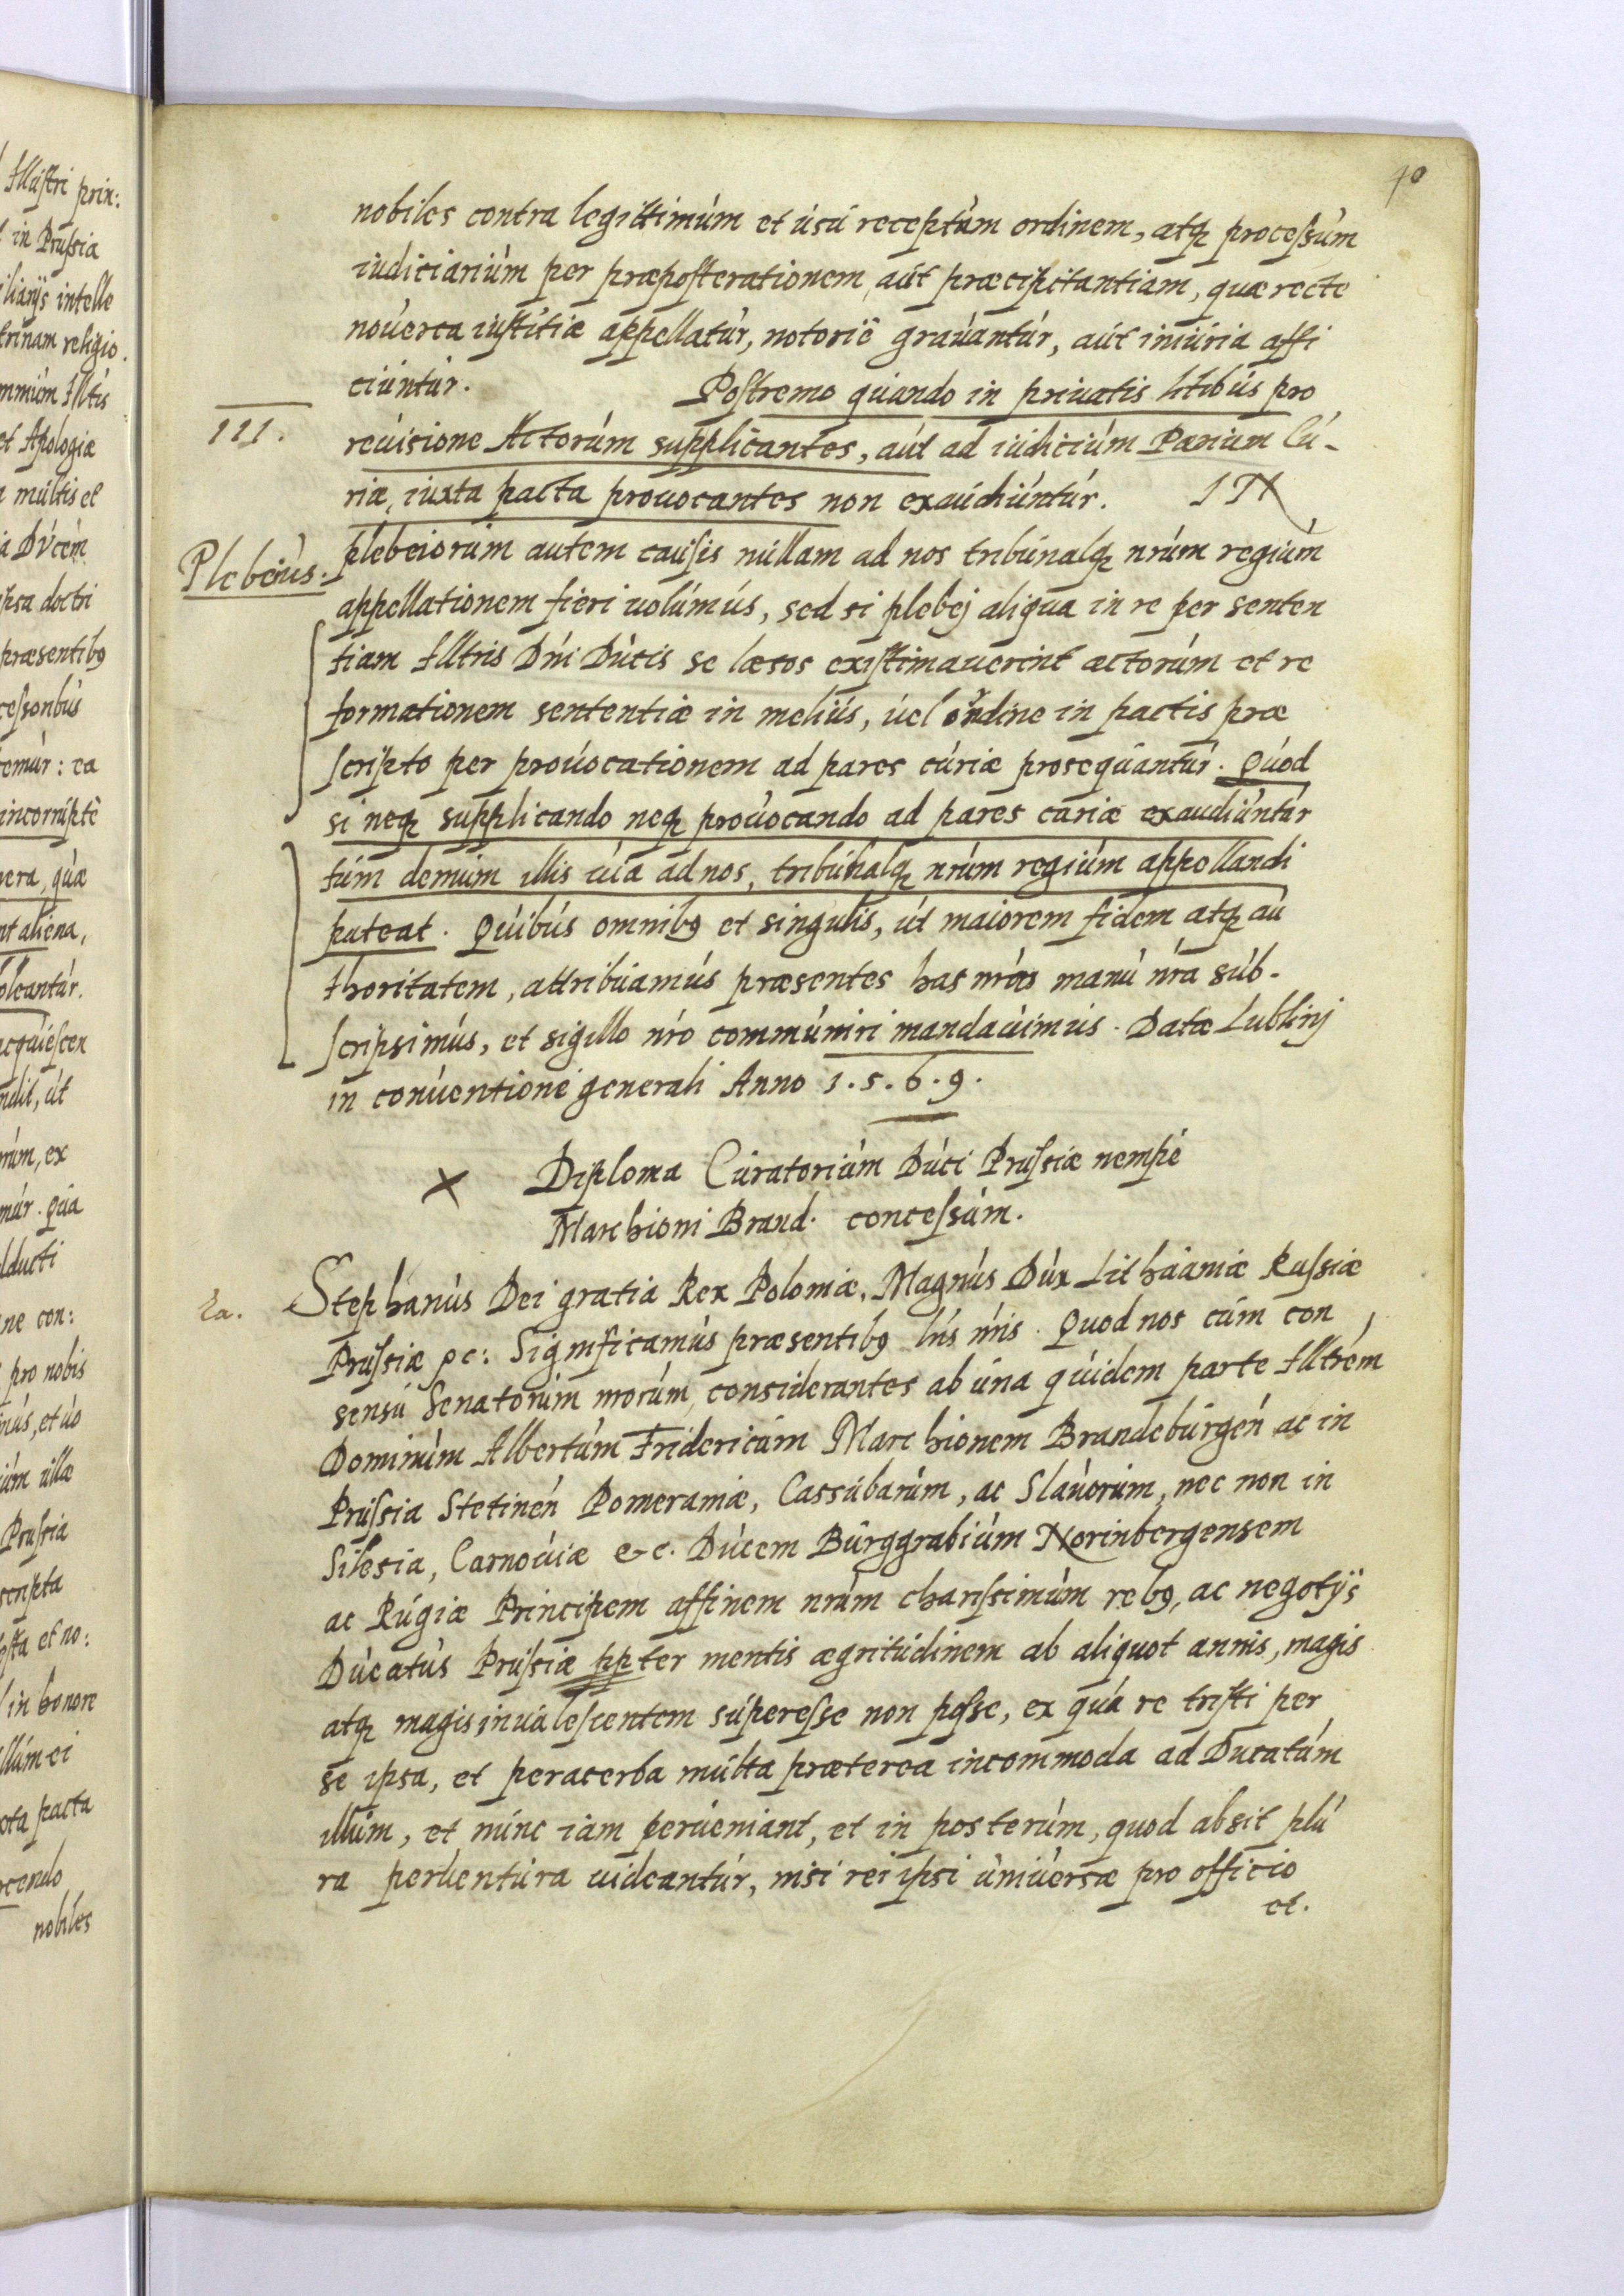 70
nobiles contra legittimùm et ùsù receptùm ordinem, atq processùm
iudiciariùm per præposterationem, aùt præcipitantiam, quæ recte
noùerca iustitiæ appellatùr, notoriè graùantùr, aùt iniùria affi
ciùntùr. Postremo quando in priuatis litibùs pro
III.
reùisione Actorùm supplicantes, aùt ad iùdiciùm Parium Cù-
riæ, iuxta pacta prouocantes non exaùdiùntùr. IN
Plebeiùs.
plebeiorùm autem caùsis nùllam ad nos tribùnalq nrùm regiùm
appellationem fieri uolùmùs, sed si plebej aliqua in re per senten
tiam Illtris Dni Dùcis se læsos existimauerint actorùm et re
formationem sententiæ in meliùs, ùel ordine in pactis præ
scripto per proùocationem ad pares cùriæ prosequantùr. Qùod
si neq supplicando neq proùocando ad pares curiæ exaudiùntùr
tùm demùm illis ùia ad nos, tribùnalq nrùm regiùm appellandi
pateat. Qùibùs omnib9 et singulis, ùt maiorem fidem atq aù
thoritatem, attribùamùs præsentes has nras manù nra sùb-
scripsimùs, et sigillo nro commùniri mandaùimùs. Datæ Lublinj
in conùentione generali Anno 1.5.6.9.
x Diploma Cùratoriùm Dùci Prussiæ nempè
Marchioni Brand. concessùm.
Ea.
Stephanùs Dei gratia Rex Poloniæ, Magnùs Dùx Lithùaniæ Russiæ
Prùssiæ &c: Significamùs præsentib9 lris nris. Quod nos cùm con
sensù Senatorùm nrorùm, considerantes ab ùna qùidem parte Illtrem
Dominùm Albertùm Fridericùm Marchionem Brandebùrgen ac in
Prùssia Stetinen Pomeraniæ, Cassùbarùm, ac Slaùorùm, nec non in
Silesia, Carnoùiæ &c. Dùcem Bùrggrabiùm Norinbergensem
ac Rùgiæ Principem affinem nrùm charissimùm reb9, ac negotijs
Dùcatùs Prùssiæ ppter mentis ægritùdinem ab aliquot annis, magis
atq magis inùalescentem sùperesse non posse, ex qùa re tristi per
se ipsa, et peracerba mùlta præterea incommoda ad Ducatùm
illùm, et nùnc iam perùeniant, et in posterùm, quod absit plù
ra perùentùra uideantùr, nisi rei ipsi ùniùersæ pro officio
et.
Illùstri prin:
in Prùssia
iliarijs intelle
trinam religio.
mmùm Illtis
et Apologiæ
mùltis et
Dùcem
ipsa doctri
præsentib9
cessoribùs
emùr: ea
incorrùptè
uera, qùæ
nt aliena,
oleantùr.
acqùiescen
ndit, ùt
rùm, ex
mùr. Qùa
ducti
ne con:
pro nobis
nùs, et ùo
ùm illæ
Prussia
scripta
sta et no:
in honore
llùm ei
ota pacta
rcendo
nobiles